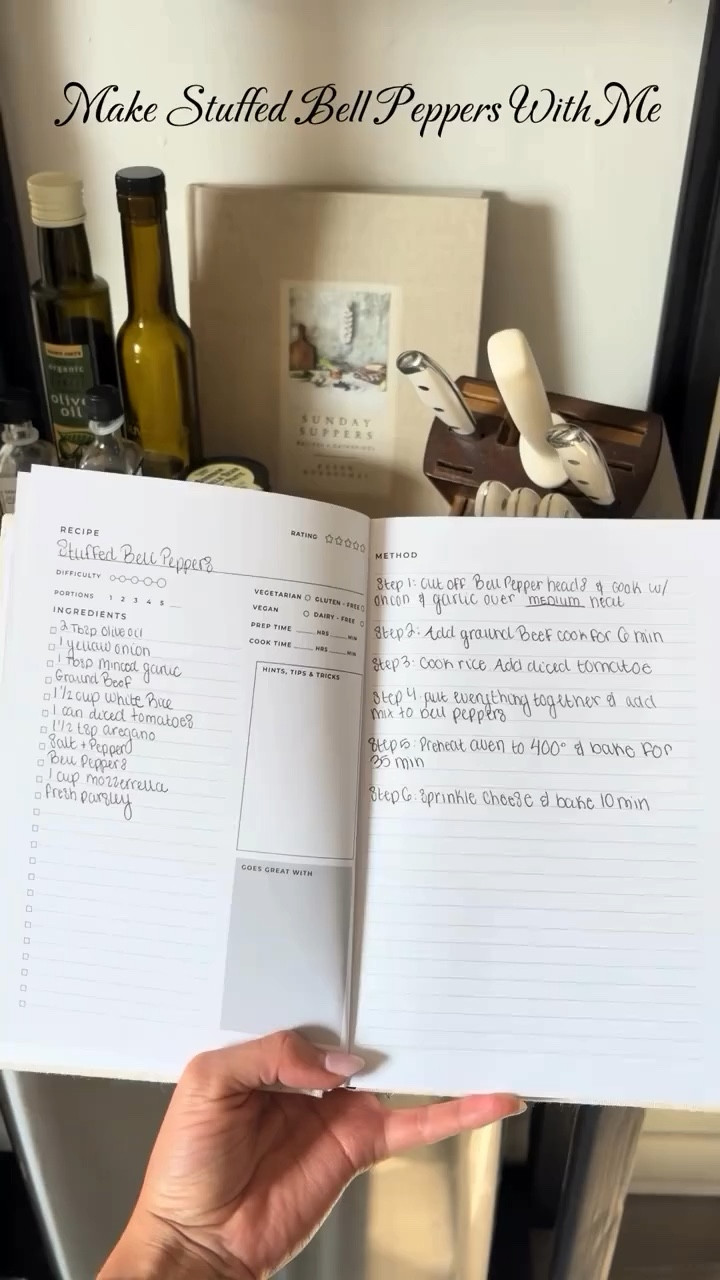 Make Stuffed Bell Peppers With Me
organic
olive
oil
SUNDAY
SUPPERS
RECIPE
Stuffed Bell Peppers
RATING
DIFFICULTY
PORTIONS 1 2 3 4 5
VEGETARIAN GLUTEN - FREE
VEGAN DAIRY - FREE
PREP TIME HRS MIN
COOK TIME HRS MIN
INGREDIENTS
2 Tbsp olive oil
1 yellow onion
1 Tbsp minced garlic
Ground Beef
1 1/2 cup White Rice
1 can diced tomatoes
1 1/2 tsp oregano
Salt + Pepper
Bell Peppers
1 cup mozzerrella
fresh parsley
HINTS, TIPS & TRICKS
GOES GREAT WITH
METHOD
Step 1: cut off Bell Pepper heads & cook w/
onion & garlic over medium heat
Step 2: Add ground Beef cook for 6 min
Step 3: Cook rice Add diced tomatoe
Step 4: put everything together & add
mix to bell peppers
Step 5: Preheat oven to 400° & bake for
35 min
Step 6: Sprinkle cheese & bake 10 min